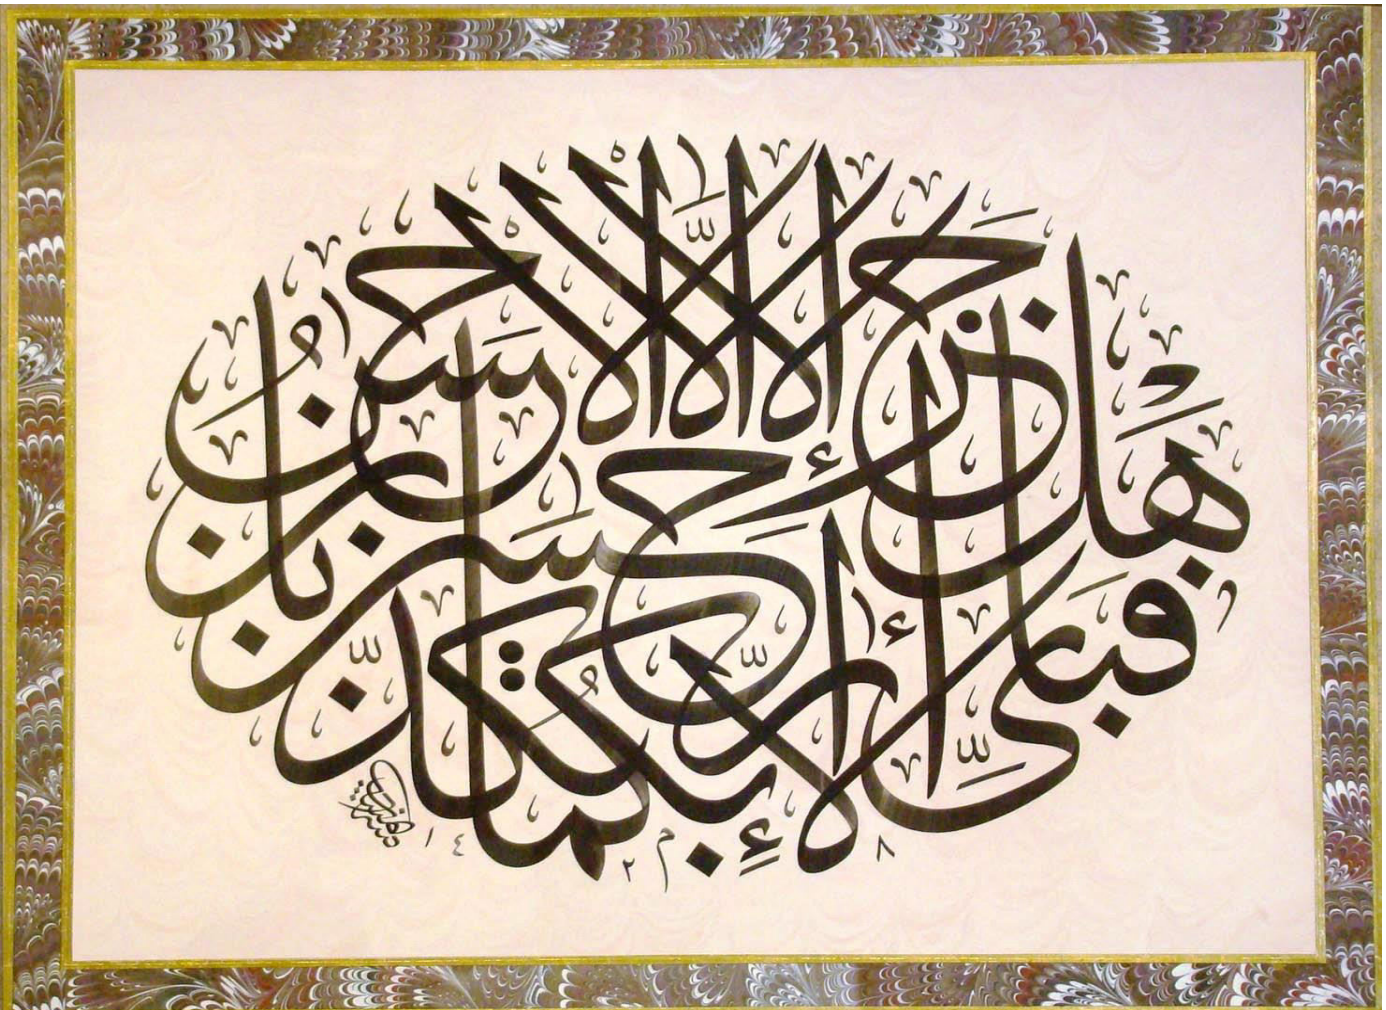 هَلْ جَزَاءُ الْإِحْسَانِ إِلَّا الْإِحْسَانُ
فَبِأَيِّ آلَاءِ رَبِّكُمَا تُكَذِّبَانِ
١٤٢٨